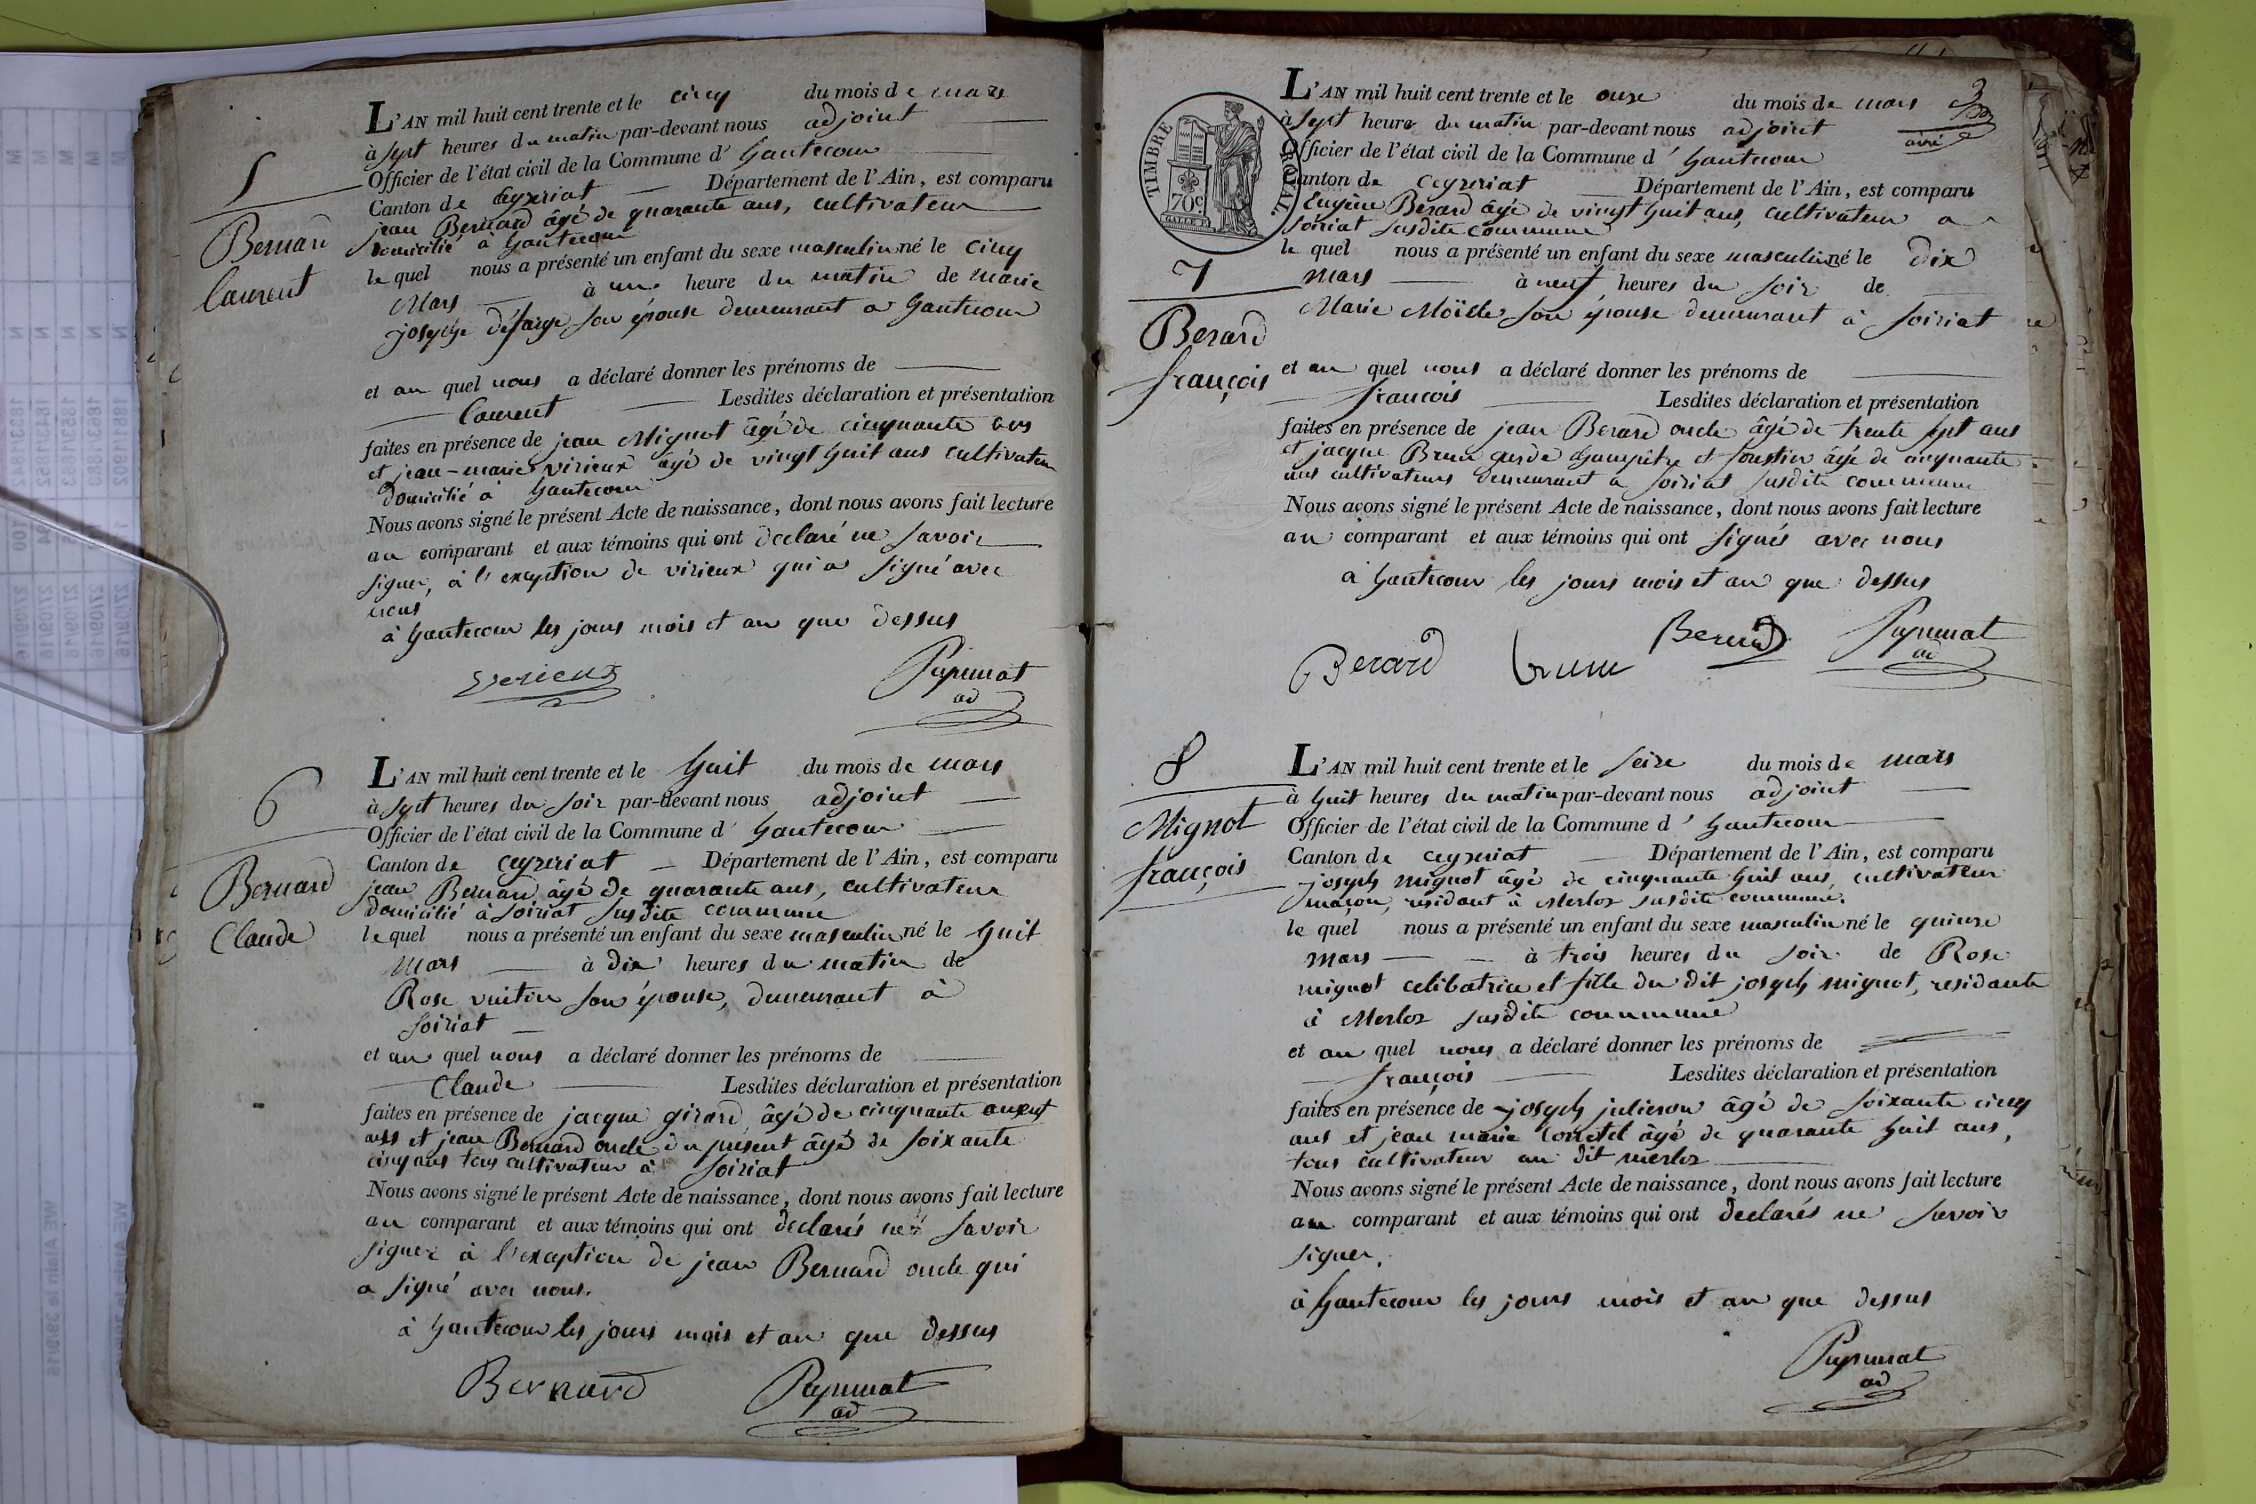 5
Bernard
Laurent
L'AN mil huit cent trente et le cinq du mois de mars
à sept heures du matin par-devant nous adjoint
Officier de l'état civil de la Commune d' hautecour
Canton de Ceyzeriat Département de l'Ain, est comparu
jean Bernard âgé de quarante ans, cultivateur
domicilié a hautecour
le quel nous a présenté un enfant du sexe masculin né le cinq
Mars à une heure du matin de marie
josephe défarge son épouse demeurant a hautecour
et au quel nous a déclaré donner les prénoms de
Laurent Lesdites déclaration et présentation
faites en présence de jean Mignot âgé de cinquante ans
et jean-marie virieux âgé de vingt huit ans cultivateur
domicilié à hautecour
Nous avons signé le présent Acte de naissance, dont nous avons fait lecture
au comparant et aux témoins qui ont declaré ne savoir
signer, à l'exception de virieux qui a signé avec
nous
à hautecour les jours mois et an que dessus
verieux
ad
6
Bernard
Claude
L'AN mil huit cent trente et le huit du mois de mars
à sept heures du soir par-devant nous adjoint
Officier de l'état civil de la Commune d' hautecour
Canton de ceyzeriat Département de l'Ain, est comparu
jean Bernard âgé de quarante ans, cultivateur
domicilié à soiriat susdite commune
le quel nous a présenté un enfant du sexe masculin né le huit
Mars à dix heures du matin de
Rose vuitin son épouse, demeurant à
soiriat
et au quel nous a déclaré donner les prénoms de
Claude Lesdites déclaration et présentation
faites en présence de jacque girard, âgé de cinquante
ans et jean Bernard oncle du present âgé de soixante
cinq ans tous cultivateur à soiriat
Nous avons signé le présent Acte de naissance, dont nous avons fait lecture
au comparant et aux témoins qui ont declarés ne savoir
signer à l'exception de jean Bernard oncle qui
a signé avec nous.
à hautecour les jours mois et an que dessus
Bernard
ad
TIMBRE ROYAL.
70c.
7
Berard
françois
L'AN mil huit cent trente et le onze du mois de mars
à sept heures du matin par-devant nous adjoint
Officier de l'état civil de la Commune d' hautecour
Canton de ceyzeriat Département de l'Ain, est comparu
Eugène Berard âgé de vingt huit ans, cultivateur a
soiriat susdite commune
le quel nous a présenté un enfant du sexe masculin né le dix
mars à neuf heures du soir de
Marie son épouse demeurant à soiriat
et au quel nous a déclaré donner les prénoms de
francois Lesdites déclaration et présentation
faites en présence de jean Berard oncle âgé de trente sept ans
et jacque Brun garde champêtre et âgé de cinquante
ans cultivateurs demeurant a soiriat susdite commune
Nous avons signé le présent Acte de naissance, dont nous avons fait lecture
au comparant et aux témoins qui ont signés avec nous
à hautecour les jours mois et an que dessus
Berard brun
ad
8
Mignot
françois
L'AN mil huit cent trente et le seize du mois de mars
à huit heures du matin par-devant nous adjoint
Officier de l'état civil de la Commune d' hautecour
Canton de ceyzeriat Département de l'Ain, est comparu
joseph mignot âgé de cinquante huit ans, cultivateur
maçon, résidant à Merloz susdite commune.
le quel nous a présenté un enfant du sexe masculin né le quinze
mars à trois heures du soir de Rose
mignot celibatrice et fille du dit joseph mignot, residante
à Merloz susdite commune
et au quel nous a déclaré donner les prénoms de
françois Lesdites déclaration et présentation
faites en présence de joseph julieron âgé de soixante cinq
ans et jean marie âgé de quarante huit ans,
tous cultivateur au dit merloz
Nous avons signé le présent Acte de naissance, dont nous avons fait lecture
au comparant et aux témoins qui ont declarés ne savoir
signer.
à hautecour les jours mois et an que dessus
ad